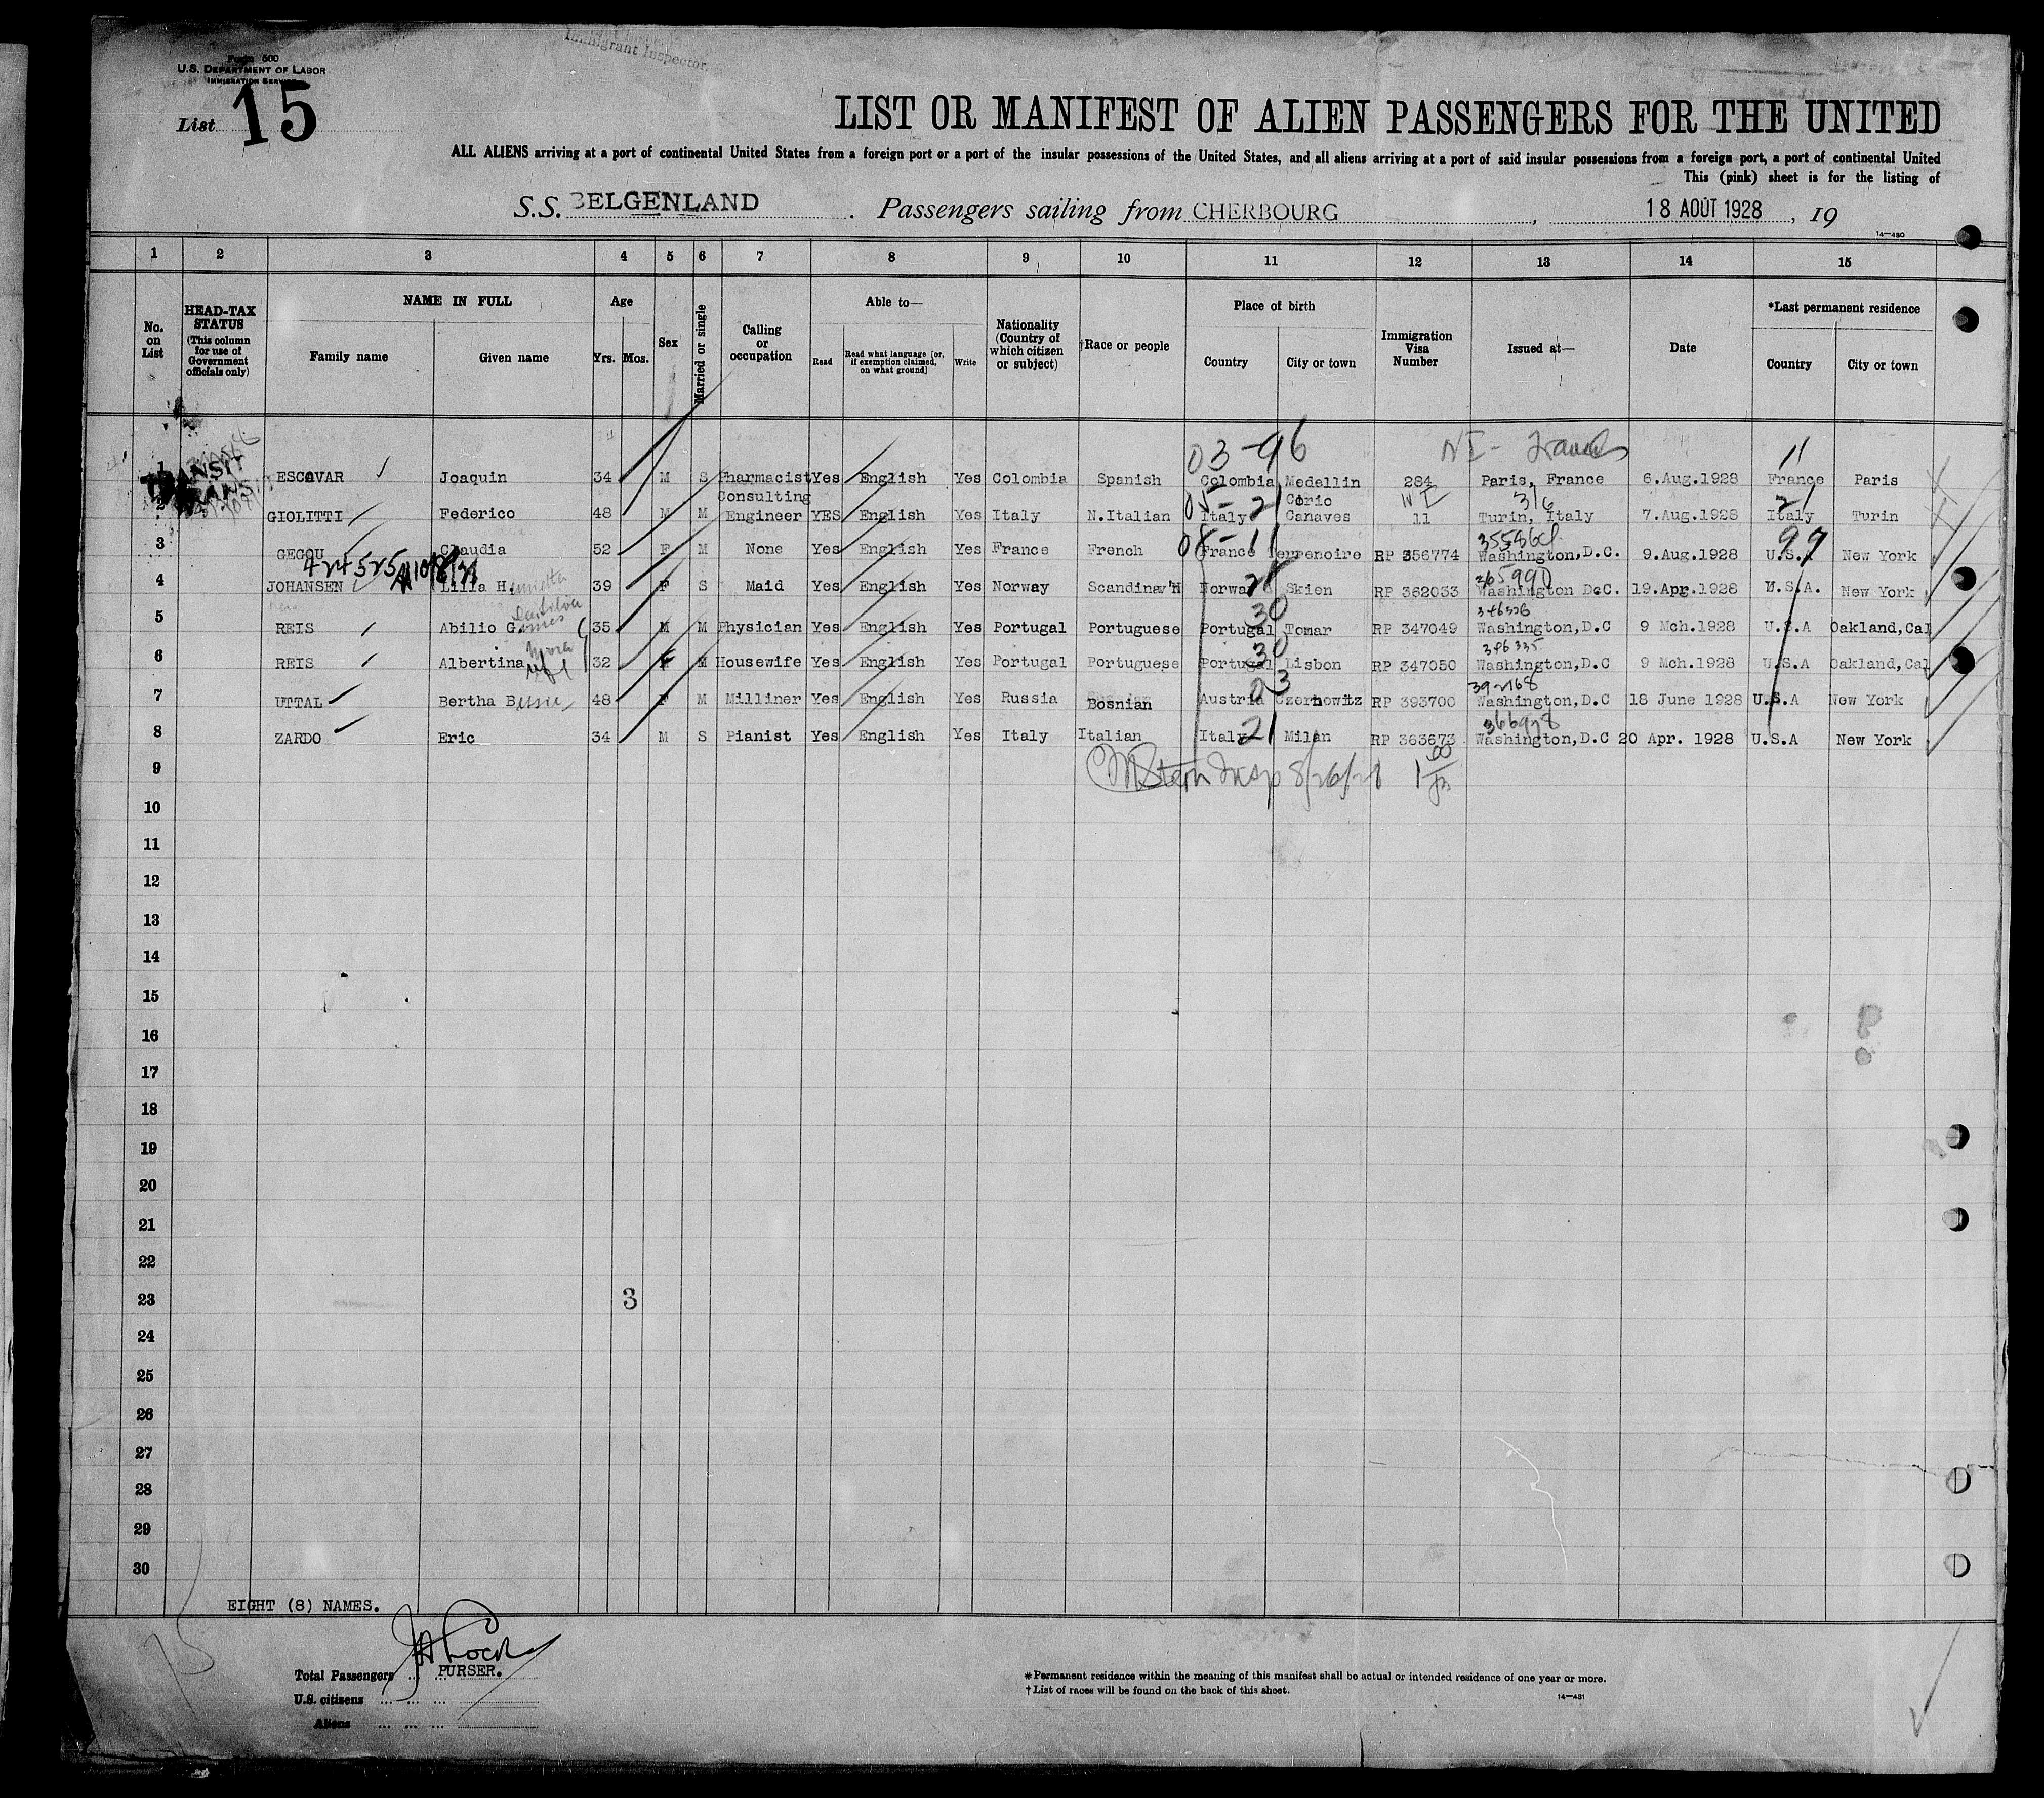 Form 500
U.S. DEPARTMENT OF LABOR
IMMIGRATION SERVICE
Immigrant Inspector.
List 15
LIST OR MANIFEST OF ALIEN PASSENGERS FOR THE UNITED
ALL ALIENS arriving at a port of continental United States from a foreign port or a port of the insular possessions of the United States, and all aliens arriving at a port of said insular possessions from a foreign port, a port of continental United
This (pink) sheet is for the listing of
S.S. BELGENLAND. Passengers sailing from CHERBOURG, 18 AOÛT 1928, 19
14—480
1 2 3 4 5 6 7 8 9 10 11 12 13 14 15
No. on List
HEAD-TAX STATUS (This column for use of Government officials only)
NAME IN FULL
Family name Given name
Age
Yrs. Mos.
Sex
Married or single
Calling or occupation
Able to—
Read Read what language [or, if exemption claimed, on what ground] Write
Nationality (Country of which citizen or subject)
†Race or people
Place of birth
Country City or town
Immigration Visa Number
Issued at—
Date
*Last permanent residence
Country City or town
03-96 NI- 11
TRANSIT
1 ESCOVAR Joaquin 34 M S Pharmacist Yes English Yes Colombia Spanish Colombia Medellin 284 Paris, France 6.Aug.1928 France Paris
Consulting 05-21 NI 316 21
2 GIOLITTI Federico 48 M M Engineer YES English Yes Italy N.Italian Italy Canaves 11 Turin, Italy 7.Aug.1928 Italy Turin
08-11 99
3 GEGOU Claudia 52 F M None Yes English Yes France French France Terrenoire RP 356774 Washington,D.C. 9.Aug.1928 U.S.A New York
4 JOHANSEN Lilla H. 39 F S Maid Yes English Yes Norway Scandinav'n Norway Skien RP 362033 Washington D.C. 19.Apr.1928 U.S.A. New York
30
5 REIS Abilio Gomes 35 M M Physician Yes English Yes Portugal Portuguese Portugal Tomar RP 347049 Washington,D.C 9 Mch.1928 U.S.A Oakland,Cal
30 346335
6 REIS Albertina 32 F M Housewife Yes English Yes Portugal Portuguese Portugal Lisbon RP 347050 Washington,D.C 9 Mch.1928 U.S.A Oakland,Cal
03 392768
7 UTTAL Bertha Bessie 48 F M Milliner Yes English Yes Russia Bosnian Austria Czernowitz RP 393700 Washington,D.C 18 June 1928 U.S.A New York
21 366978
8 ZARDO Eric 34 M S Pianist Yes English Yes Italy Italian Italy Milan RP 363673 Washington,D.C 20 Apr. 1928 U.S.A New York
9 Stern Insp 8/26/28
10
11
12
13
14
15
16
17
18
19
20
21
22
23 3
24
25
26
27
28
29
30
EIGHT (8) NAMES.
Total Passengers ... ... PURSER.
U.S. citizens ... ... ...
Aliens ... ... ...
*Permanent residence within the meaning of this manifest shall be actual or intended residence of one year or more.
†List of races will be found on the back of this sheet.
14—431